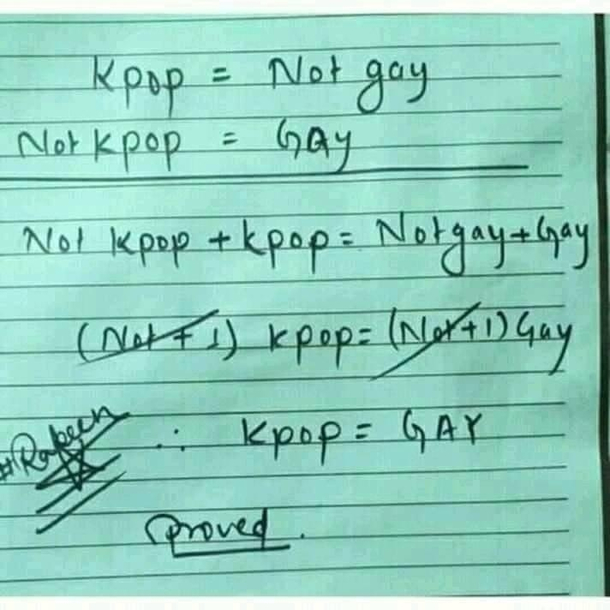 Kpop = Not gay
Not Kpop = GAY
Not Kpop + kpop = Not gay + Gay
(Not + 1) kpop = (Not + 1) Gay
∴ Kpop = GAY
proved.